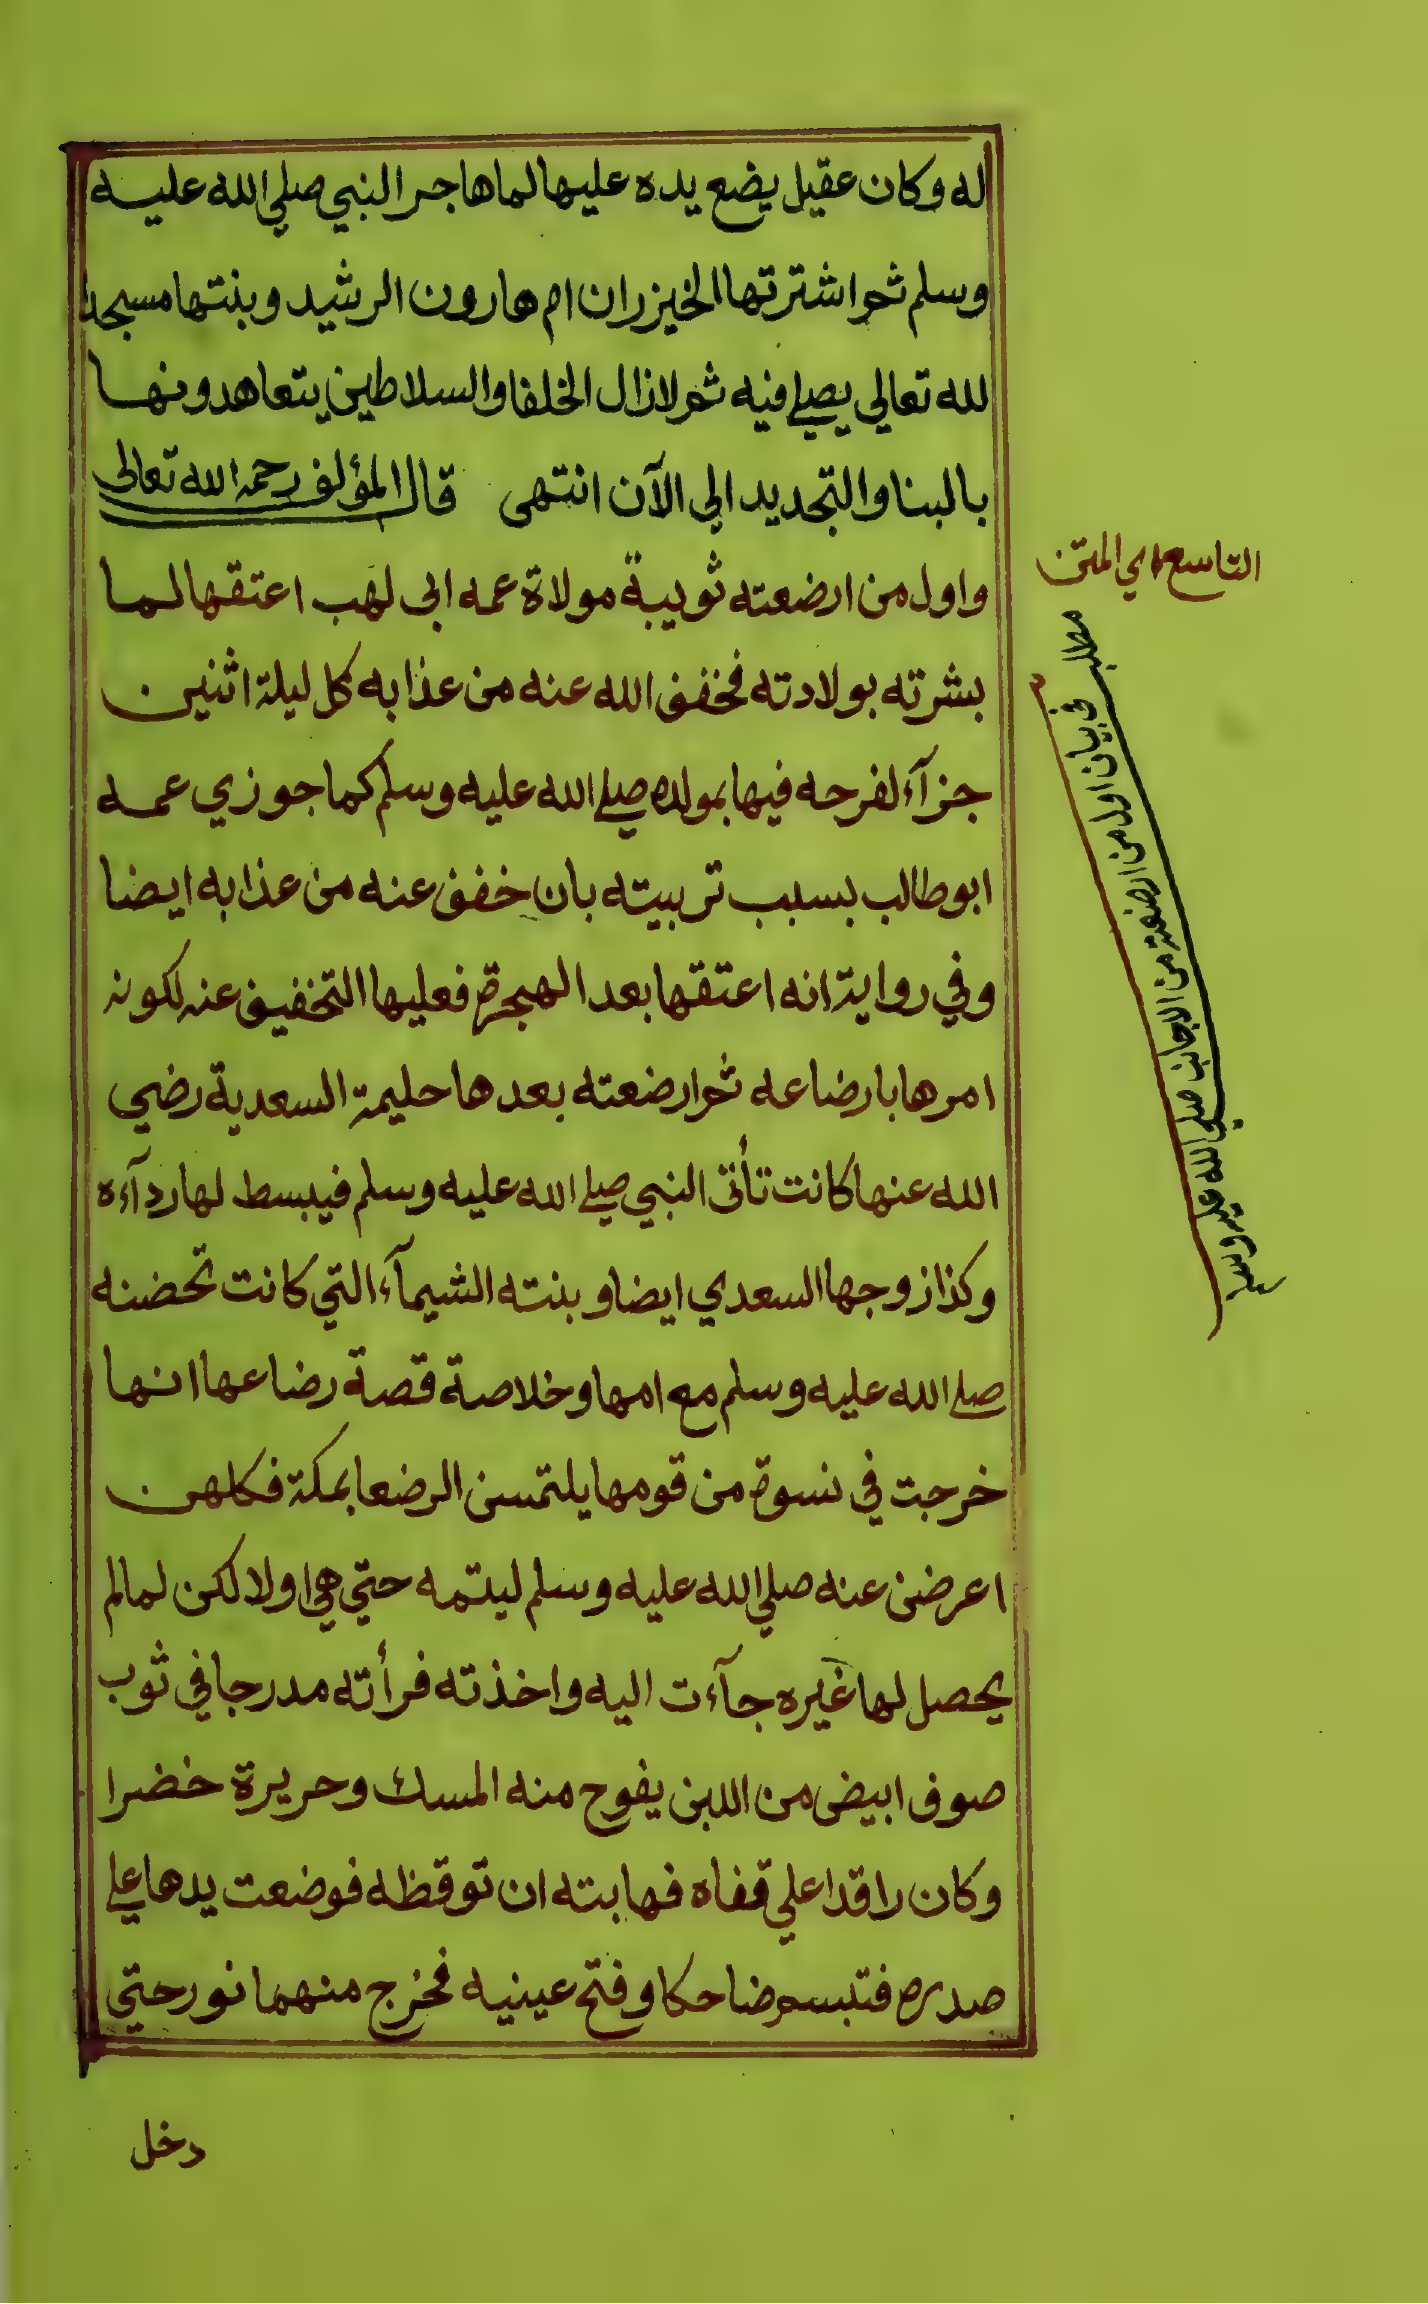 له وكان عقيل يضع يده عليها لما هاجر النبي صلي الله عليه
وسلم ثم اشترتها الخيزران ام هارون الرشيد وبنتها مسجدا
لله تعالي يصلي فيه ثم لازال الخلفا والسلاطين يتعاهدونها
بالبنا والتجديد الي الآن انتهى قال المؤلف رحمه الله تعالى
واول من ارضعته ثويبة مولاة عمه ابي لهب اعتقها لما
بشرته بولادته فخفف الله عنه من عذابه كل ليلة اثنين
جزآء لفرحه فيها بمولده صلي الله عليه وسلم كما جوزي عمه
ابو طالب بسبب تربيته بان خفف عنه من عذابه ايضا
وفي رواية انه اعتقها بعد الهجرة فعليها التخفيف عنه لكونه
امرها بارضاعه ثم ارضعته بعدها حليمة السعدية رضي
الله عنها كانت تأتي النبي صلي الله عليه وسلم فيبسط لها ردآءه
وكذا زوجها السعدي ايضا وبنته الشيمآء التي كانت تحضنه
صلي الله عليه وسلم مع امها وخلاصة قصة رضاعها انها
خرجت في نسوة من قومها يلتمسن الرضعا بمكة فكلهن
اعرضن عنه صلي الله عليه وسلم ليتمه حتي هي اولا لكن لما لم
يحصل لها غيره جآءت اليه واخذته فرأته مدرجا في ثوب
صوف ابيض من اللبن يفوح منه المسك وحريرة خضرا
وكان راقدا علي قفاه فهابته ان توقظه فوضعت يدها علي
صدره فتبسم ضاحكا وفتح عينيه فخرج منهما نور حتي
دخل
التاسع اي المتن
مطلب في بيان اول من ارضعته من الاجانب صلي الله عليه وسلم